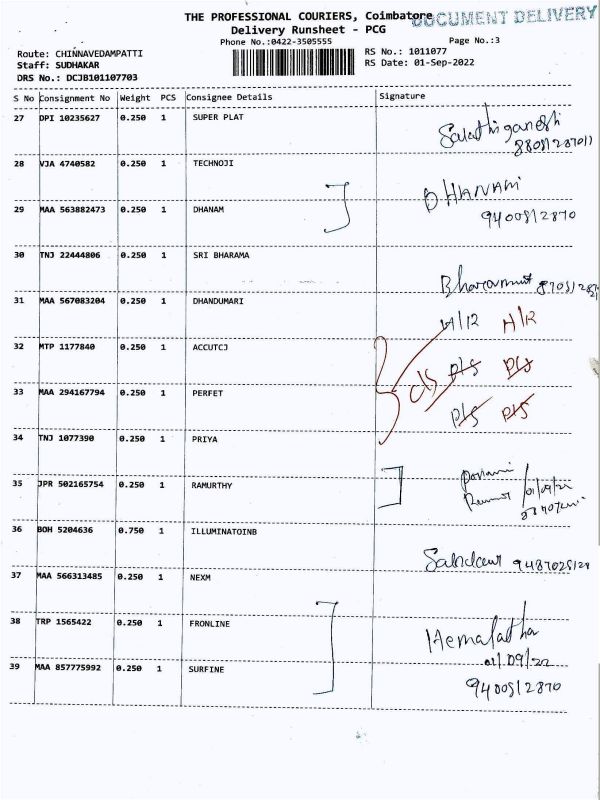 THE PROFESSIONAL COURIERS, Coimbatore
DOCUMENT DELIVERY
Delivery Runsheet - PCG
Phone No.:0422-3505555
Page No.:3
Route: CHINNAVEDAMPATTI
RS No.: 1011077
Staff: SUDHAKAR
RS Date: 01-Sep-2022
DRS No.: DCJB101107703
S No Consignment No Weight PCS Consignee Details Signature
27 DPI 10235627 0.250 1 SUPER PLAT
28 VJA 4740582 0.250 1 TECHNOJI
29 MAA 563882473 0.250 1 DHANAM
9400812870
30 TNJ 22444806 0.250 1 SRI BHARAMA
31 MAA 567083204 0.250 1 DHANDUMARI
H/R H/R
32 MTP 1177840 0.250 1 ACCUTCJ
33 MAA 294167794 0.250 1 PERFET
34 TNJ 1077390 0.250 1 PRIYA
35 JPR 502165754 0.250 1 RAMURTHY
36 BOH 5204636 0.750 1 ILLUMINATOINB
37 MAA 566313485 0.250 1 NEXM
38 TRP 1565422 0.250 1 FRONLINE
Hemalatha
01/09/22
39 MAA 857775992 0.250 1 SURFINE
9400812870